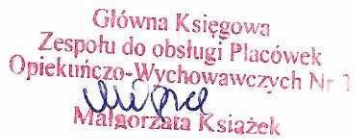 Główna Księgowa
Zespołu do obsługi Placówek
Opiekuńczo-Wychowawczych Nr 1
Małgorzata Książek